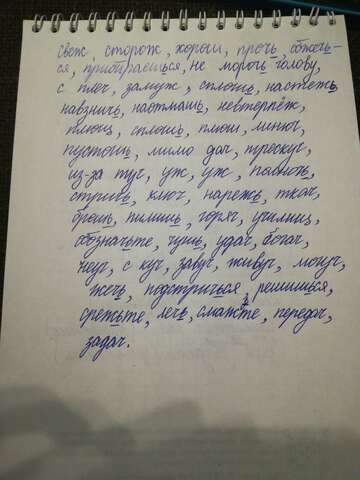 свеж, сторож, хорош, прочь, обжечь-
ся, прибираешься, не морочь голову,
с плеч, замуж, сплошь, настежь
навзничь, наотмашь, невтерпёж,
плющ, сплошь, плюш, минюч,
пустошь, мимо дач, трескуч,
из-за туч, уж, уж, помощь,
стричь, ключ, нарежь, ткач,
брешь, пишишь, горяч, училищ,
обозначьте, чушь, удач, богач,
неуч, с куч, завуч, живуч, могуч,
жечь, подстричься, решишься,
срежьте, лечь, смажьте, передач,
задач.